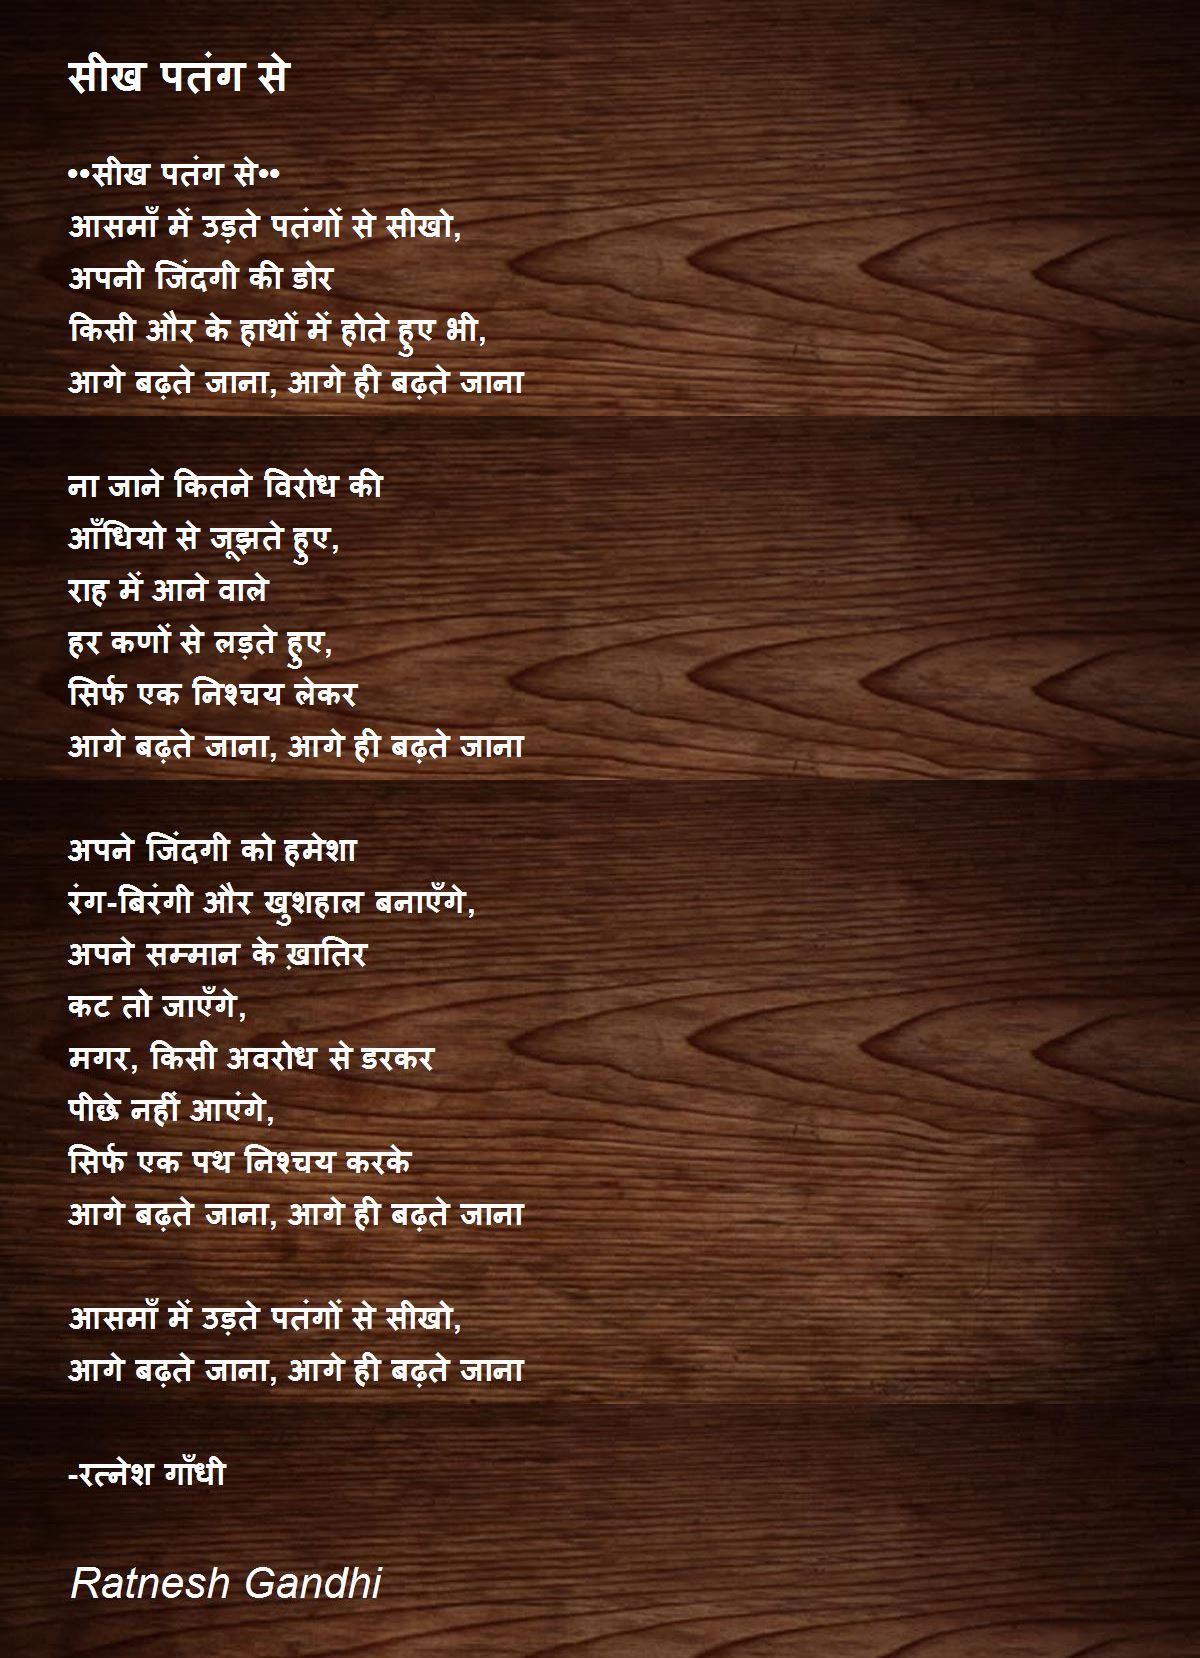 सीख पतंग से
••सीख पतंग से••
आसमाँ में उड़ते पतंगों से सीखो,
अपनी जिंदगी की डोर
किसी और के हाथों में होते हुए भी,
आगे बढ़ते जाना, आगे ही बढ़ते जाना
ना जाने कितने विरोध की
आँधियो से जूझते हुए,
राह में आने वाले
हर कणों से लड़ते हुए,
सिर्फ एक निश्चय लेकर
आगे बढ़ते जाना, आगे ही बढ़ते जाना
अपने जिंदगी को हमेशा
रंग-बिरंगी और खुशहाल बनाएँगे,
अपने सम्मान के ख़ातिर
कट तो जाएँगे,
मगर, किसी अवरोध से डरकर
पीछे नहीं आएंगे,
सिर्फ एक पथ निश्चय करके
आगे बढ़ते जाना, आगे ही बढ़ते जाना
आसमाँ में उड़ते पतंगों से सीखो,
आगे बढ़ते जाना, आगे ही बढ़ते जाना
-रत्नेश गाँधी
Ratnesh Gandhi